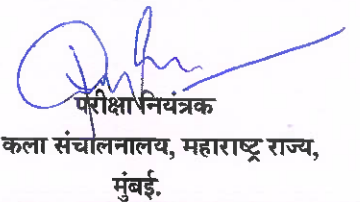 परीक्षा नियंत्रक
कला संचालनालय, महाराष्ट्र राज्य,
मुंबई.